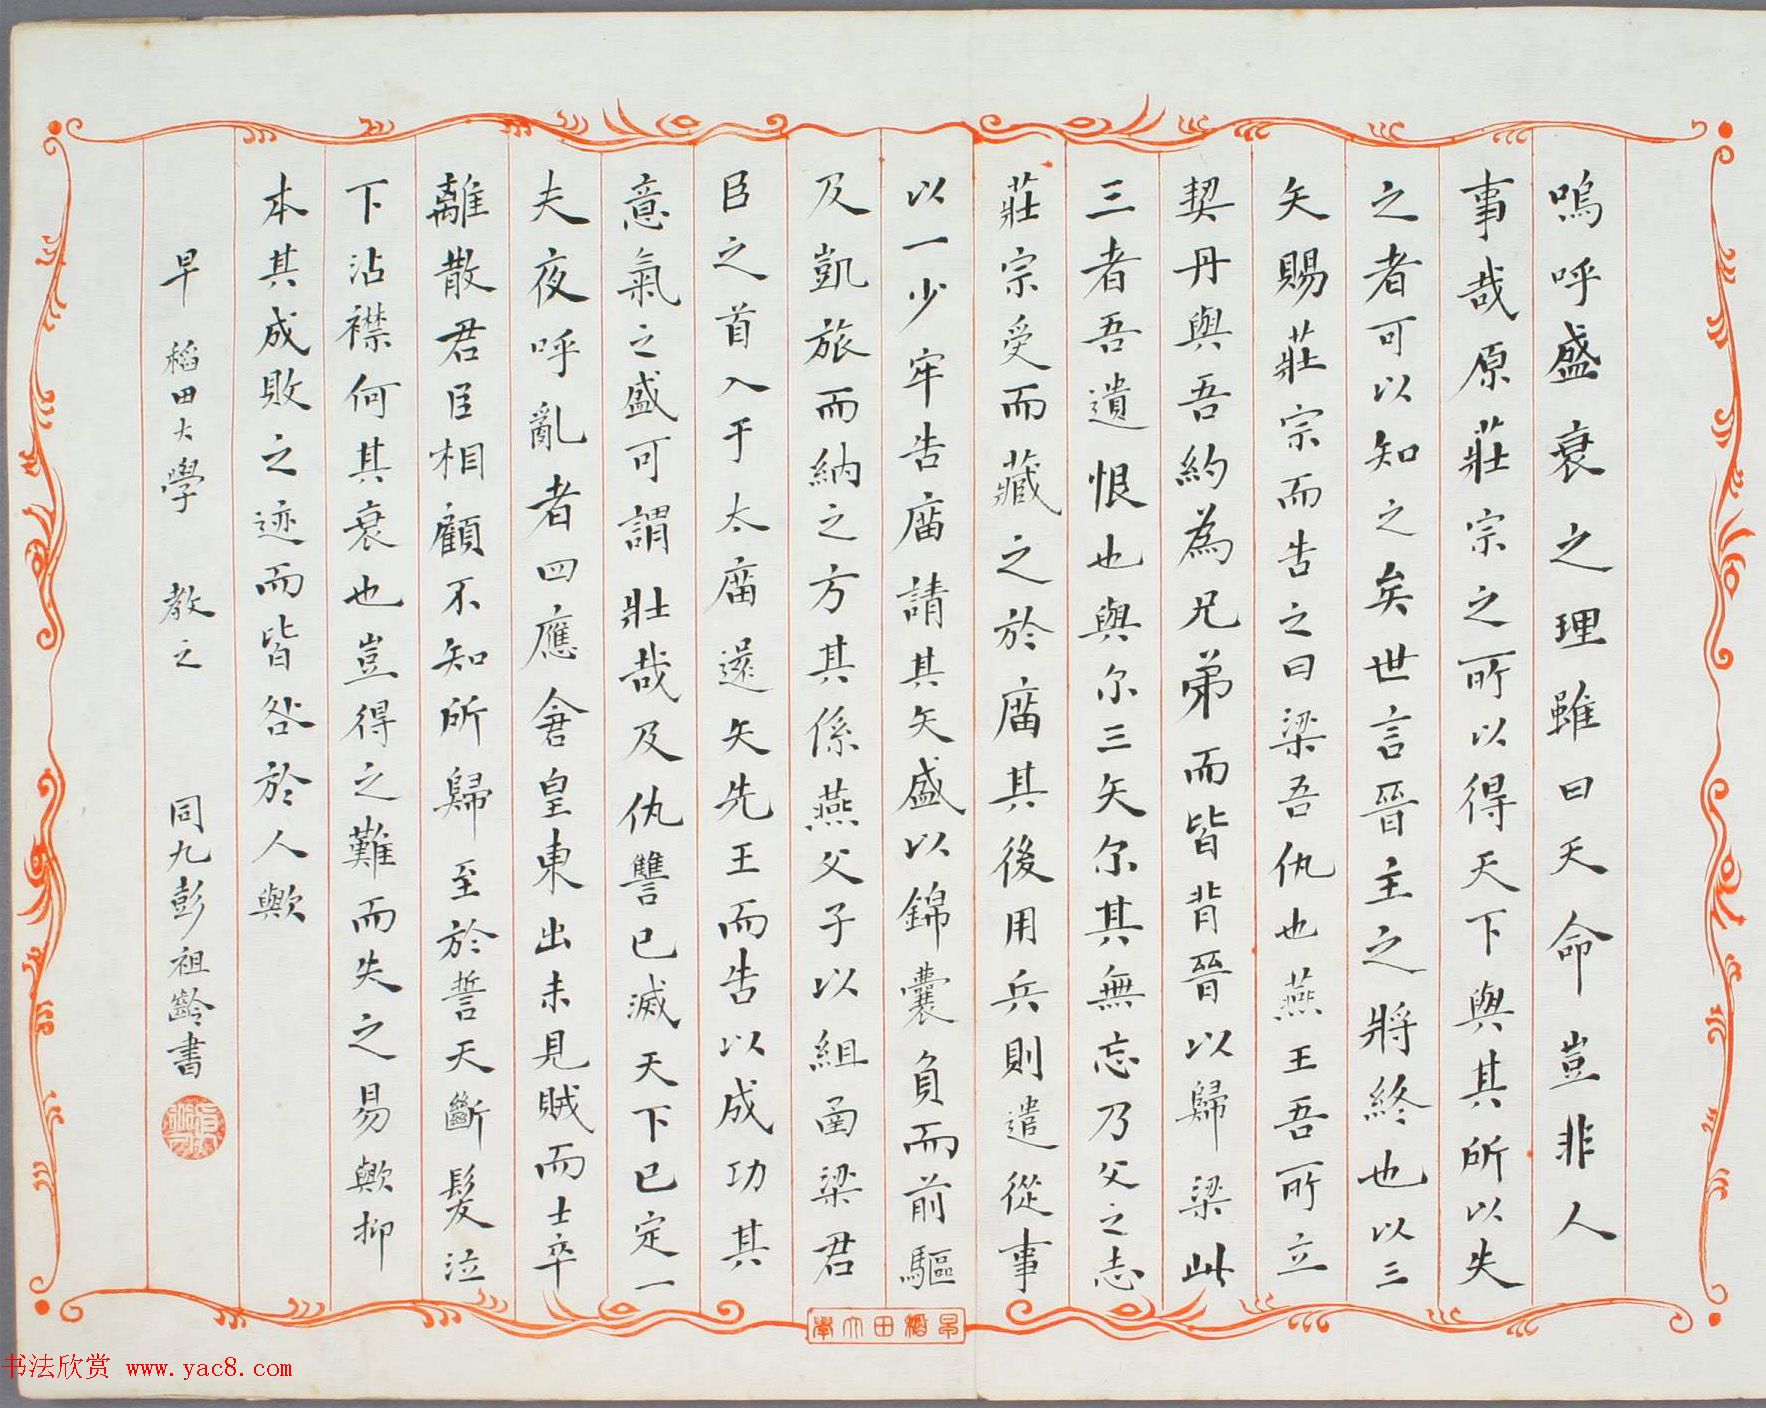 嗚呼盛衰之理雖曰天命豈非人
事哉原莊宗之所以得天下與其所以失
之者可以知之矣世言晉主之將終也以三
矢賜莊宗而告之曰梁吾仇也燕王吾所立
契丹與吾約為兄弟而皆背晉以歸梁此
三者吾遺恨也與尔三矢尔其無忘乃父之志
莊宗受而藏之於廟其後用兵則遣從事
以一少牢告廟請其矢盛以錦囊負而前驅
及凱旅而納之方其係燕父子以組函梁君
臣之首入于太廟還矢先王而告以成功其
意氣之盛可謂壯哉及仇讐已滅天下已定一
夫夜呼亂者四應倉皇東出未見賊而士卒
離散君臣相顧不知所歸至於誓天斷髮泣
下沾襟何其衰也豈得之難而失之易歟抑
本其成敗之迹而皆咎於人歟
早稻田大學 教之 同九彭祖齡書
早稻田大學
书法欣赏 www.yac8.com